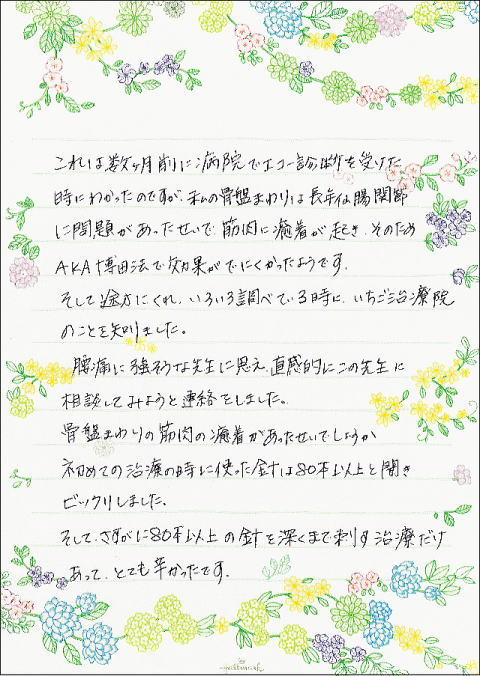 これは数ヶ月前に病院でエコー診断を受けた
時にわかったのですが、私の骨盤まわりは長年仙腸関節
に問題があったせいで筋肉に癒着が起き、そのため
AKA博田法で効果がでにくかったようです。
そして途方にくれ、いろいろ調べている時に、いちご治療院
のことを知りました。
腰痛に強そうな先生に思え、直感的にこの先生に
相談してみようと連絡をしました。
骨盤まわりの筋肉の癒着があったせいでしょうか
初めての治療の時に使った針は80本以上と聞き
ビックリしました。
そして、さすがに80本以上の針を深くまで刺す治療だけ
あって、とても辛かったです。